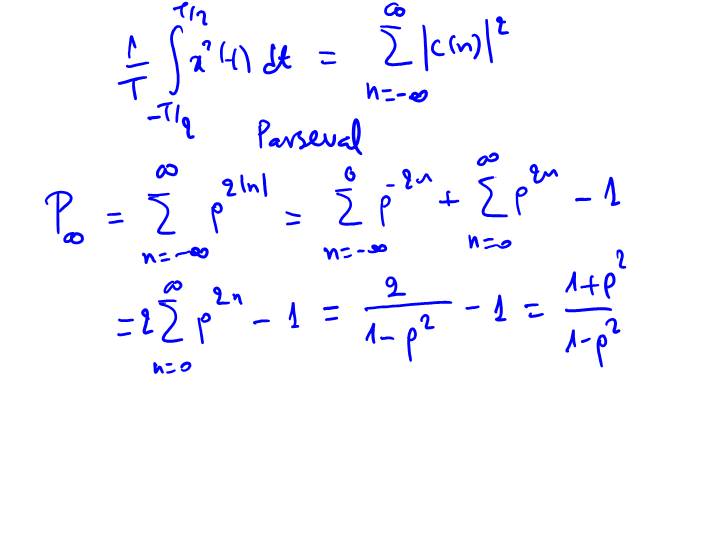 1/T ∫_{-T/2}^{T/2} x²(t) dt = ∑_{n=-∞}^{∞} |c(n)|²
Parseval
P_∞ = ∑_{n=-∞}^{∞} ρ^{2|n|} = ∑_{n=-∞}^{0} ρ^{-2n} + ∑_{n=0}^{∞} ρ^{2n} - 1
= 2 ∑_{n=0}^{∞} ρ^{2n} - 1 = 2/(1-ρ²) - 1 = (1+ρ²)/(1-ρ²)